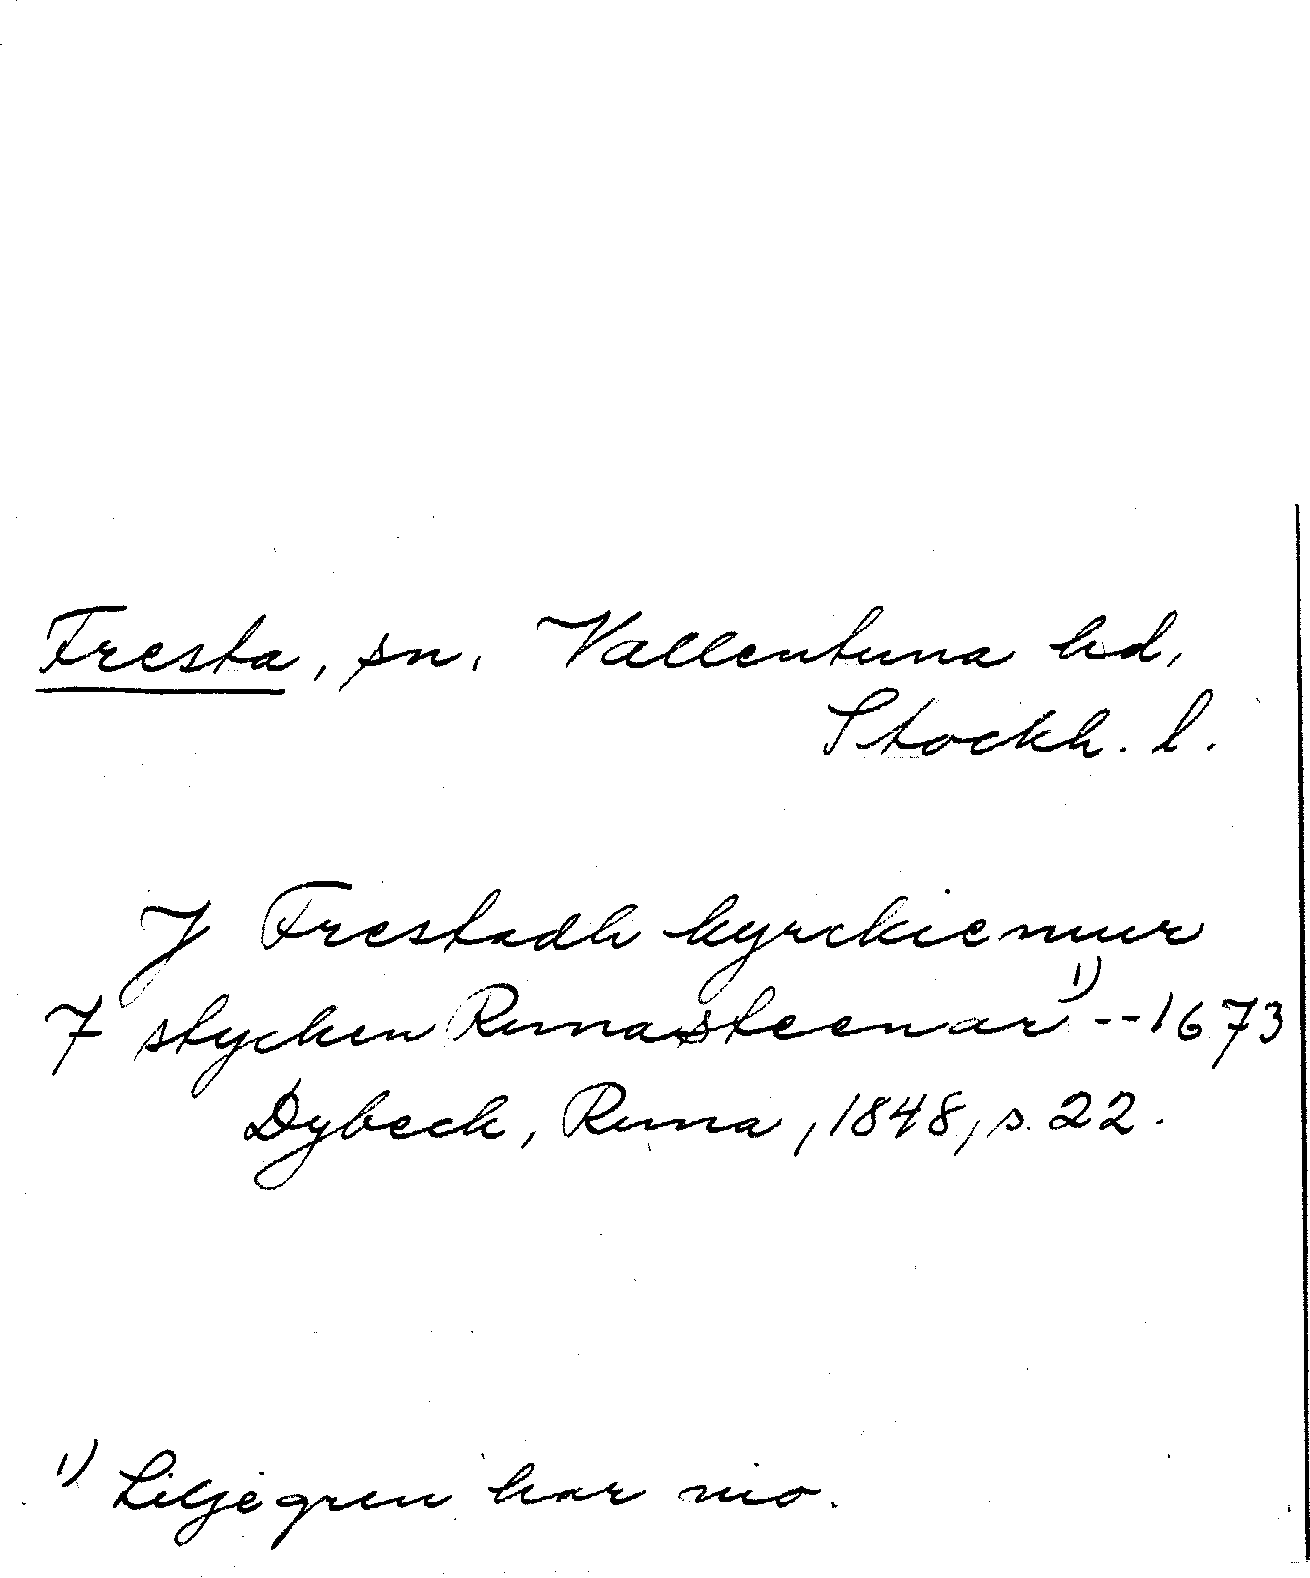 Fresta, sn. Vallentuna hd,
Stockh. l.
J Frestadh kyrckiemuur
7 stycken Runasteenar 1) -- 1673
Dybeck, Runa, 1848, s. 22.
1) Liljegren har nio.